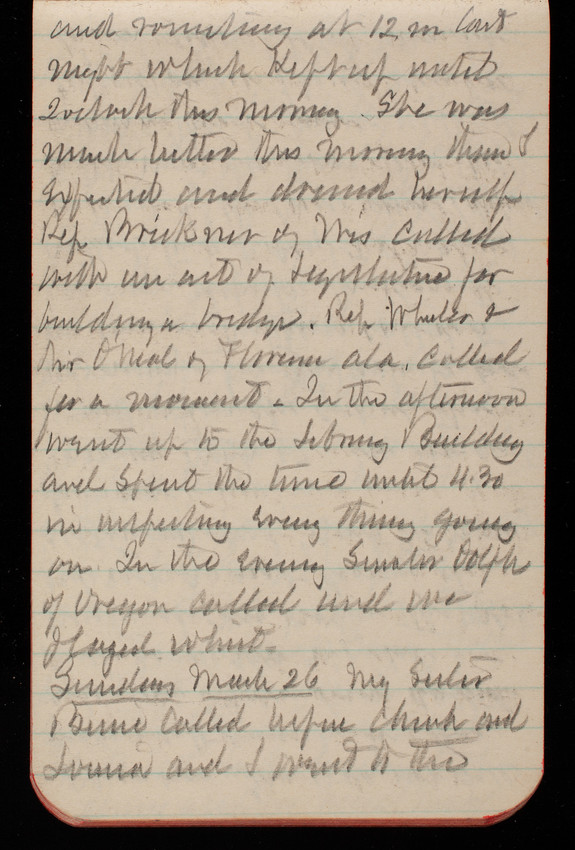 and vomiting at 12 m last
night which Kept up until
2 oclock this morning. She was
much better this morning than I
Expected and dressed herself
Rep Brickner of Wis called
with an act of Legislature for
building a bridge. Rep Wheeler &
Mr O'Neal of Florence Ala. called
for a moment. In the afternoon
went up to the Library Building
and Spent the time until 4.30
in inspecting Every thing going
on. In the Evening Senator Dolph
of Oregon called and we
played whist.
Sunday March 26 My Sister
called before church and
and I went to the